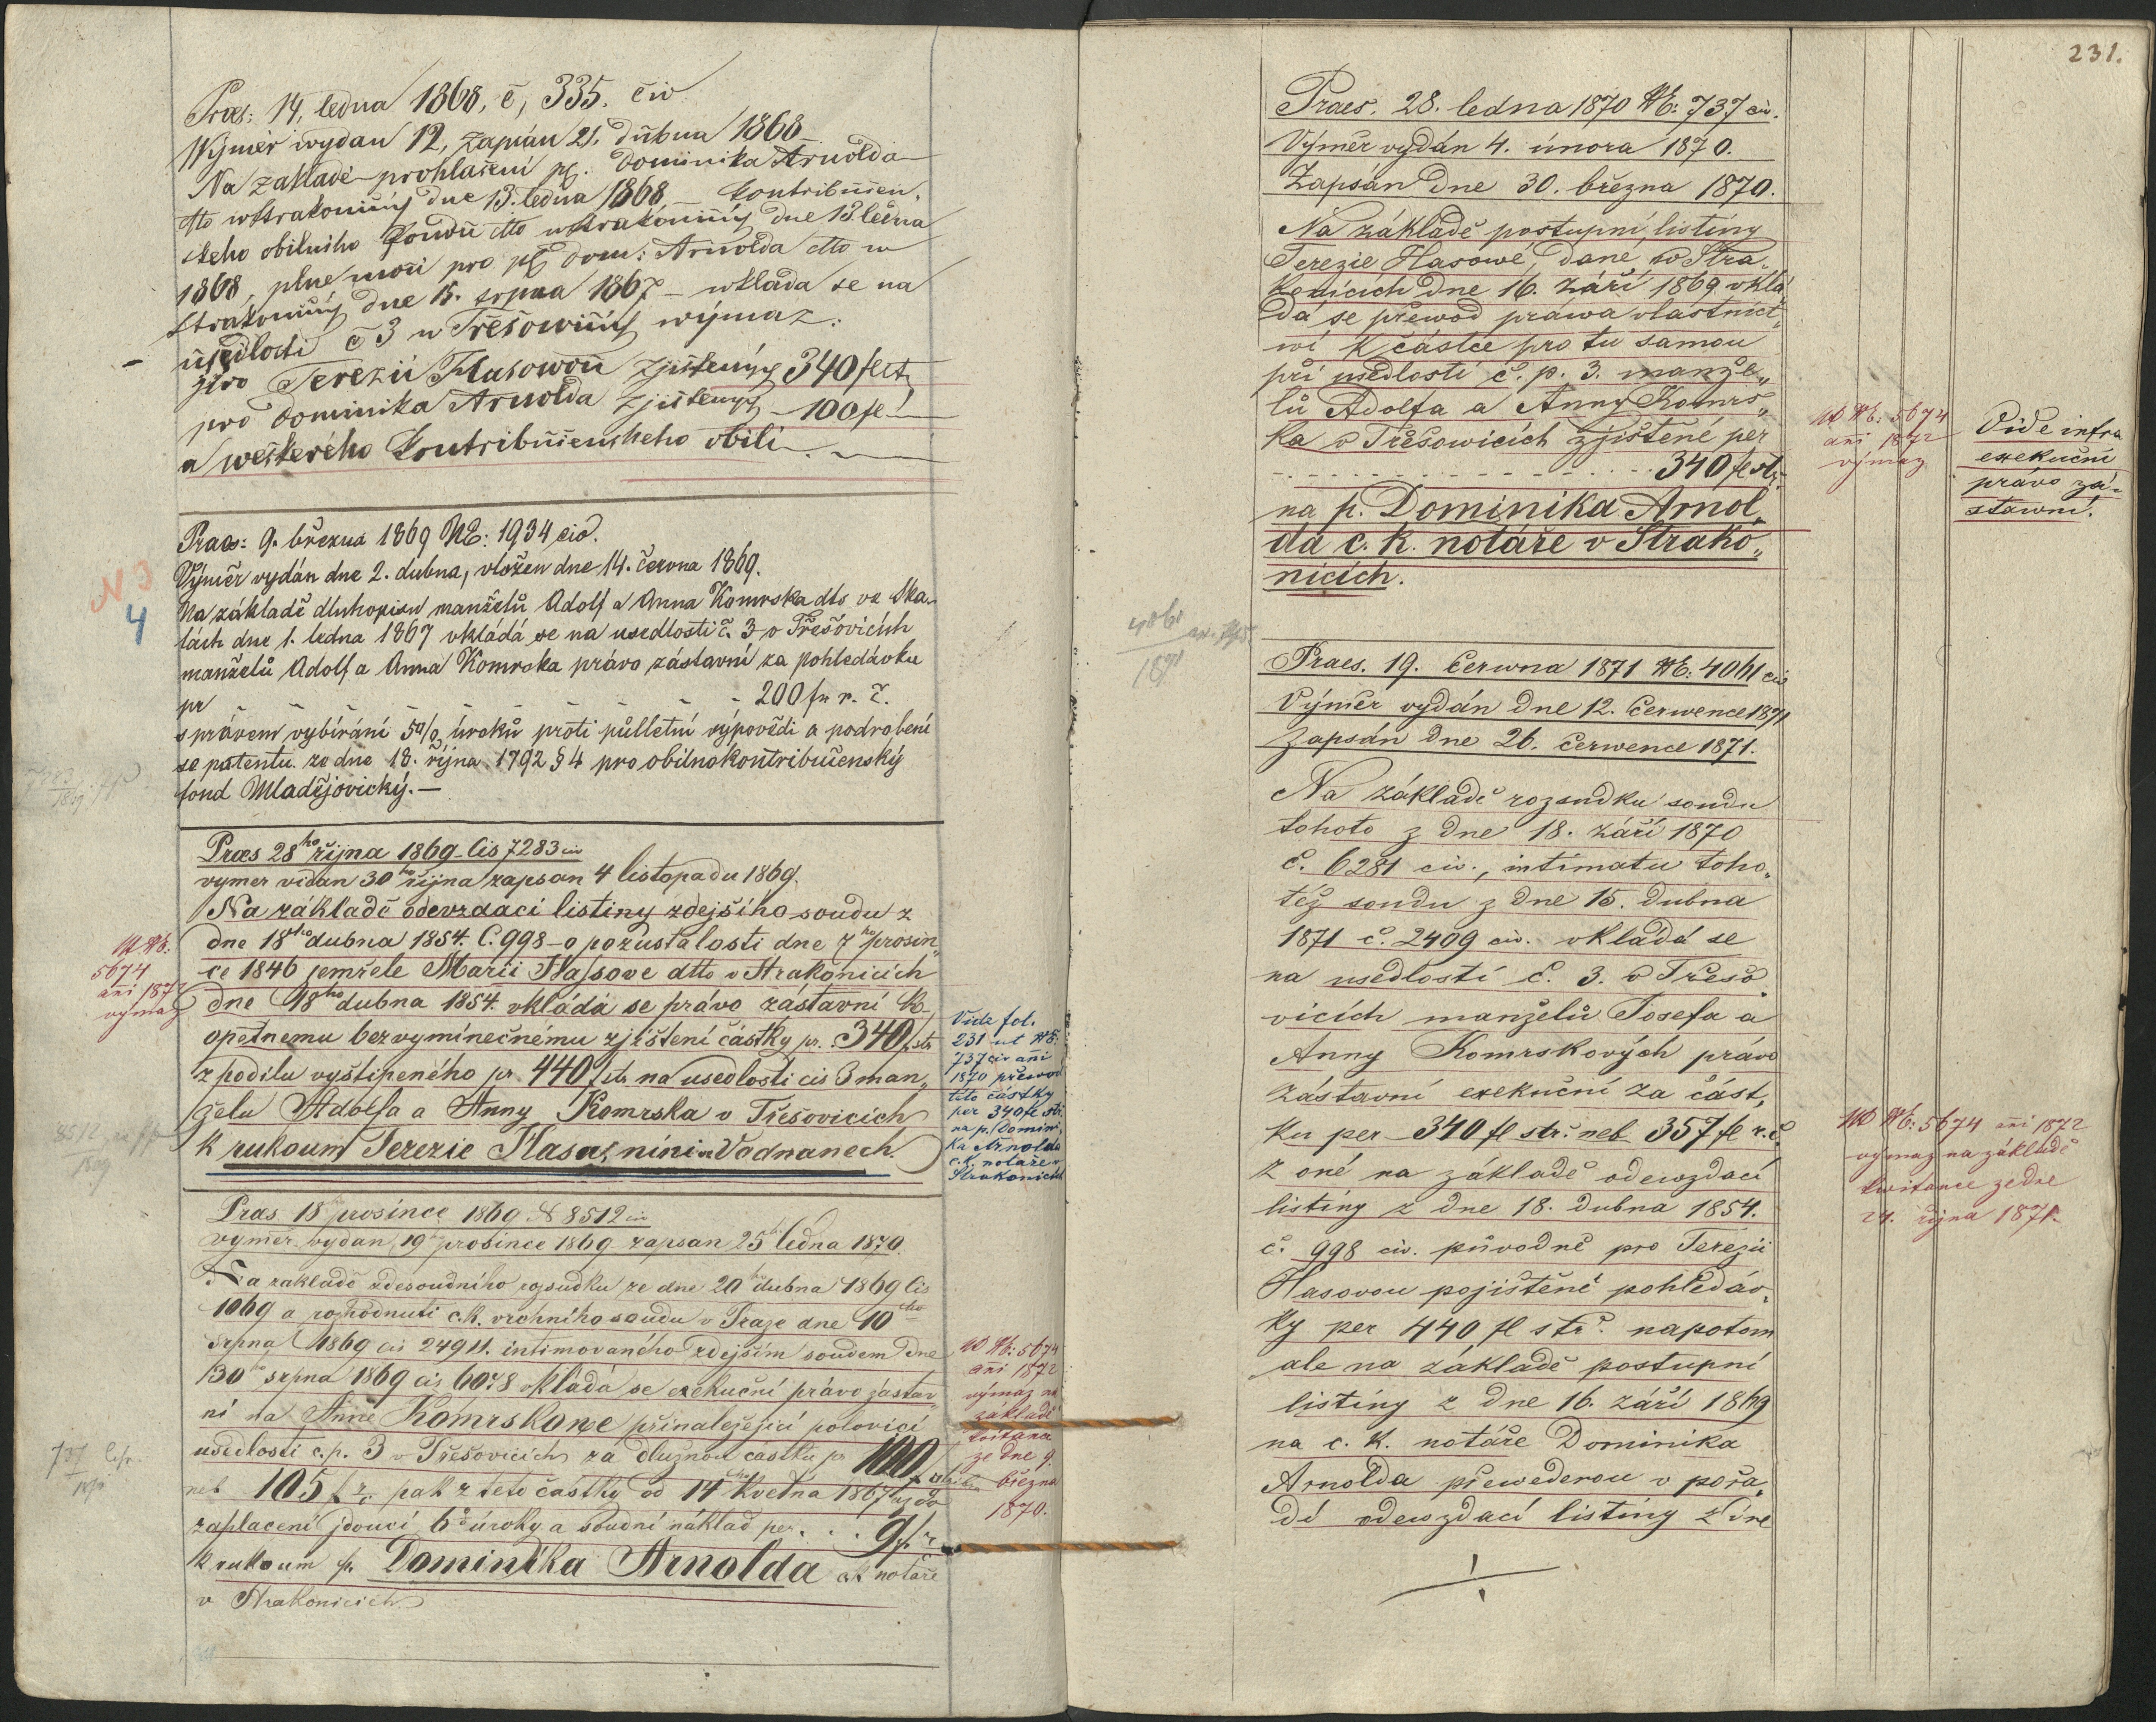 Praes: 14. ledna 1868, č, 335. civ
Wýměr wydan 12, zapsán 21. dubna 1868
Na zakladě prohlašeni pℓ. Dominika Arnolda
dtto w Strakonicých dne 13. ledna 1868 kontribučen.
skeho obilniho fondu dtto w Strakonicých dne 13 ledna
1868, plne moci pro pℓ Dom: Arnolda dtto w
Strakonicých dne 15. srpna 1867 – wklada se na
usedlosti č 3 w Třešowicých wýmaz:
pro Terezii Hasowou zjistených 340 fl stř
pro Dominika Arnolda zjistených – 100 fl
a weškerého kontribučenskeho obili.
Praes: 9. března 1869 NE: 1934 civ.
Výměr vydán dne 2. dubna, vložen dne 14. června 1869.
Na základě dluhopisu manželů Adolf a Anna Komrska dto ve Ska-
lách dne 1. ledna 1867 vkládá se na usedlosti č. 3 v Třešovicích
manželů Adolf a Anna Komrska právo zástavní za pohledávku
pr – – – – – 200 fr. r. č.
s právem vybírání 5% úroků proti půlletní výpovědi a podrobení
se patentu ze dne 18. října 1792 § 4 pro obilnokontribučenský
fond Mladějovický. —
N 3
4
Præs 28ho října 1869 čis 7283 civ
vymer vidan 30ho října zapsan 4 listopadu 1869.
Na základě odevzdací listiny zdejšího soudu z
dne 18ho dubna 1854. C. 998 – o pozustalosti dne 7ho prosin„
ce 1846 zemřele Marii Hassove dtto v Strakonicich
dne 18ho dubna 1854. vkládá se právo zástavní k
opětnemu bezvyminečnému zjištení částky pr. 340 f. str
z podilu vyštipeného pr 440 f str na usedlosti cis 3 man„
želu Adolfa a Anny Komrska v Třešovicich
k rukoum Terezie Hasa, nini v Vodnanech.
NE:
5674
ani 1872
výmaz
Vide fol.
231 ut NE:
737 civ ani
1870 převod
této částky
per 340 fl stř.
na p. Domini„
ka Arnolda
c. k. notáře v
Strakonicich
8512
1869
Præs 18 prosince 1869 N 8512 civ
vymer vydan 19 prosince 1869 zapsan 25ho ledna 1870.
Na zakladě zdesoudního rozsudku ze dne 20 dubna 1869 čis
1069 a rozhodnuti c. k. vrchního soudu v Praze dne 10ho
srpna 1869 cis 24911. intimovaného zdejším soudem dne
30ho srpna 1869 cis 6078 vkládá se exekuční právo zástav„
ni na Anně Komrskowe přinaležející polovici
usedlosti č. p. 3 v Třešovicich za dlužnou castku pr 100 f
neb 105 f r. č. pak z teto částky od 14ho Května 1867 až do
zaplacení jdoucí 6% úroky a soudní náklad per . . . 9 f.
k rukoum p. Dominika Arnolda ck notáře
v Strakonicich
NE: 5674
ani 1872
výmaz na
základě
kvitance
ze dne 9.
března
1870.
737
231.
Praes. 28. ledna 1870 NE: 737 civ.
Výměr vydán 4. února 1870.
Zapsán dne 30. března 1870.
Na základě postupní listiny
Terezie Hasowé, dané w Stra„
konicích dne 16. září 1869 vklá„
dá se přewod práwa vlastnict„
wí k částce pro tu samou
při usedlosti č. p. 3. manže„
lů Adolfa a Anny Komrs„
ka v Třešowicích zjištěné per
. . . . . . . . . . 340 fl stř.
na p. Dominika Arnol„
da c. k. notáře v Strako„
nicích.
NE: 5674
ani 1872
výmaz
Vide infra
exekuční
právo zá-
stawní.
4061
1871
Praes. 19. Června 1871 NE: 4061 civ
Výměr vydán dne 12. Července 1871
Zapsán dne 26. Července 1871.
Na základě rozsudku soudu
tohoto z dne 18. září 1870
č. 6281 civ., intimatu toho„
též soudu z dne 15. dubna
1871 č. 2409 civ. vkládá se
na usedlosti č. 3. v Třešo„
vicích manželů Josefa a
Anny Komrskových právo
zástavní exekuční za část„
ku per 340 fl stř. neb 357 fl r. č.
z oné na základě odewzdací
listiny z dne 18. dubna 1854.
č. 998 civ. původně pro Terezii
Hasovou pojištěné pohledáv„
ky per 440 fl stř. napotom
ale na základě postupní
listiny z dne 16. září 1869
na c. k. notáře Dominika
Arnolda přewedenou v pořa„
dí odewzdací listiny z dne
NE: 5674 ani 1872
výmaz na základě
kwitance ze dne
24. října 1871.